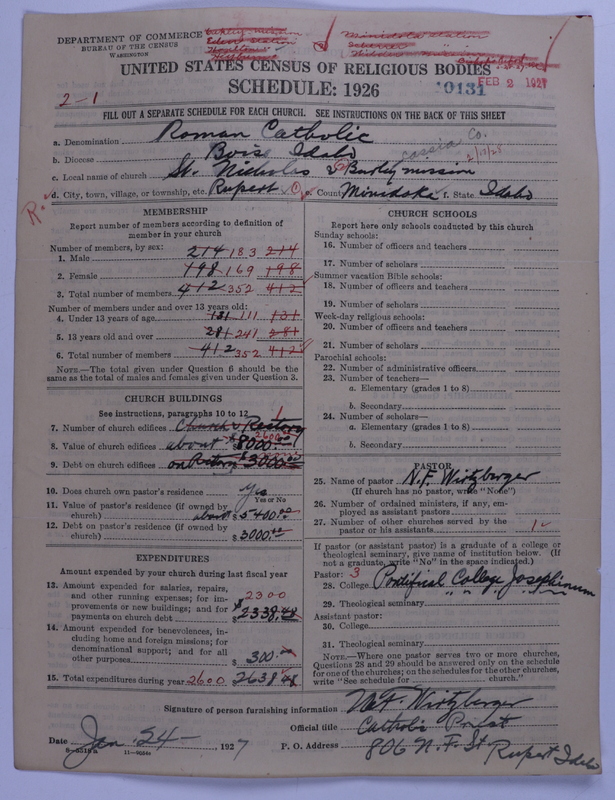 DEPARTMENT OF COMMERCE
BUREAU OF THE CENSUS
WASHINGTON
Minidoka station
UNITED STATES CENSUS OF RELIGIOUS BODIES
FEB 2 1927
SCHEDULE: 1926
10131
2-1
FILL OUT A SEPARATE SCHEDULE FOR EACH CHURCH. SEE INSTRUCTIONS ON THE BACK OF THIS SHEET
a. Denomination Roman Catholic
b. Diocese Boise Idaho Cassia Co.
c. Local name of church St. Nicholas & Burley mission 2/17/28
d. City, town, village, or township, etc. Rupert e. County Minidoka f. State Idaho
R.
MEMBERSHIP
Report number of members according to definition of
member in your church
Number of members, by sex:
1. Male 214 183 214
2. Female 198 169 198
3. Total number of members 412 352 412
Number of members under and over 13 years old:
4. Under 13 years of age 131 111 131
5. 13 years old and over 281 241 281
6. Total number of members 412 352 412
NOTE.—The total given under Question 6 should be the
same as the total of males and females given under Question 3.
CHURCH BUILDINGS
See instructions, paragraphs 10 to 12
7. Number of church edifices Church & Rectory 1
8. Value of church edifices about $8000.00 2600
9. Debt on church edifices on Rectory $3000.00
10. Does church own pastor's residence Yes
Yes or No
11. Value of pastor's residence (if owned by
church) about $5400.00
12. Debt on pastor's residence (if owned by
church) $3000.00
EXPENDITURES
Amount expended by your church during last fiscal year
13. Amount expended for salaries, repairs,
and other running expenses; for im-
provements or new buildings; and for
payments on church debt 2300 $2338.48
14. Amount expended for benevolences, in-
cluding home and foreign missions; for
denominational support; and for all
other purposes $300.00
15. Total expenditures during year 2600 2638.48
CHURCH SCHOOLS
Report here only schools conducted by this church
Sunday schools:
16. Number of officers and teachers
17. Number of scholars
Summer vacation Bible schools:
18. Number of officers and teachers
19. Number of scholars
Week-day religious schools:
20. Number of officers and teachers
21. Number of scholars
Parochial schools:
22. Number of administrative officers
23. Number of teachers—
a. Elementary (grades 1 to 8)
b. Secondary
24. Number of scholars—
a. Elementary (grades 1 to 8)
b. Secondary
PASTOR
25. Name of pastor N.F. Wirtzberger
(If church has no pastor, write "None")
26. Number of ordained ministers, if any, em-
ployed as assistant pastors
27. Number of other churches served by the
pastor or his assistants 1
If pastor (or assistant pastor) is a graduate of a college or
theological seminary, give name of institution below. (If
not a graduate, write "No" in the space indicated.)
Pastor: 3
28. College Pontifical College Josephinum
29. Theological seminary " " "
Assistant pastor:
30. College
31. Theological seminary
NOTE.—Where one pastor serves two or more churches,
Questions 28 and 29 should be answered only on the schedule
for one of the churches; on the schedules for the other churches,
write "See schedule for church."
Signature of person furnishing information N.F. Wirtzberger
Official title Catholic Priest
Date Jan. 24 1927 P. O. Address 806 N. F. St Rupert Idaho